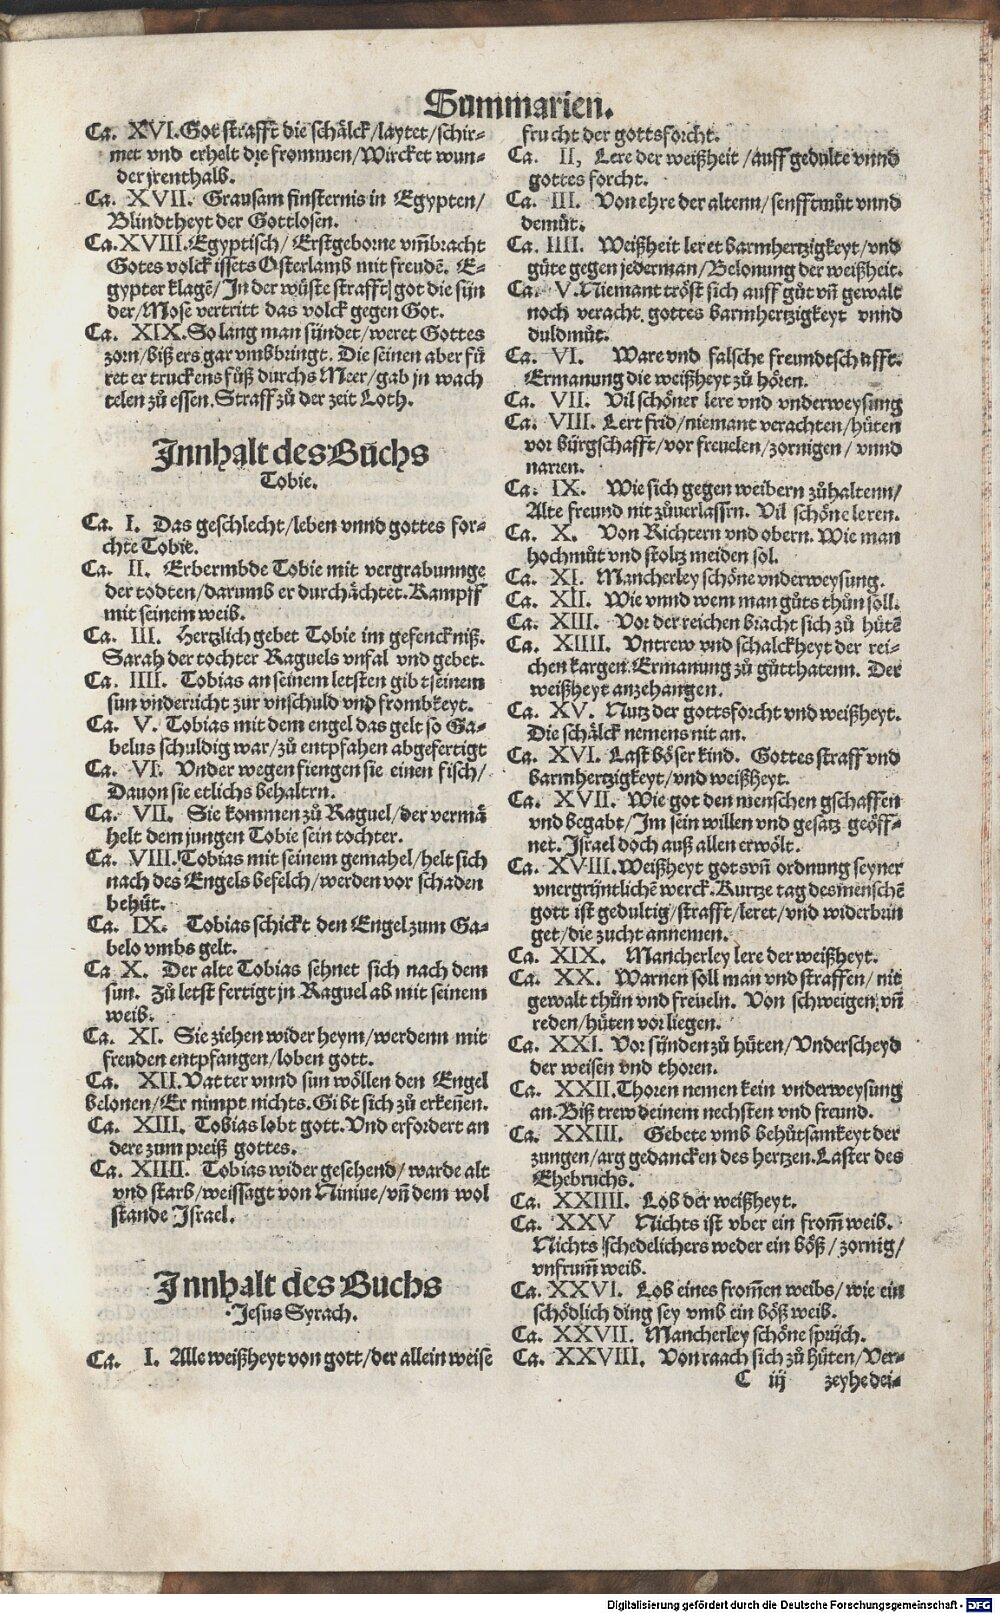 Summarien.
Ca. XVI. Got strafft die schälck/laytet/schir-
met vnd erhelt die frommen/Wircket wun-
der jrenthalb.
Ca. XVII. Grausam finsternis in Egypten/
Blindtheyt der Gottlosen.
Ca. XVIII. Egyptisch/ Erstgeborne vm̃bracht
Gotes volck issets Osterlamb mit freudē. E-
gypter klagē/In der wüste strafft got die sün
der/Mose vertritt das volck gegen Got.
Ca. XIX. So lang man sündet/weret Gottes
zorn/biß ers gar vmbbringt. Die seinen aber fü
ret er truckens füß durchs Meer/gab jn wach
telen zů essen. Straff zů der zeit Loth.
Innhalt des Bůchs
Tobie.
Ca. I. Das geschlecht/leben vnnd gottes for-
chte Tobie.
Ca. II. Erbermbde Tobie mit vergrabunnge
der todten/darumb er durchächtet. Kampff
mit seinem weib.
Ca. III. Hertzlich gebet Tobie im gefenckniß.
Sarah der tochter Raguels vnfal vnd gebet.
Ca. IIII. Tobias an seinem letsten gibt seinem
sun vnderricht zur vnschuld vnd frombkeyt.
Ca. V. Tobias mit dem engel das gelt so Ga-
belus schuldig war/zů entpfahen abgefertigt
Ca. VI. Vnder wegen fiengen sie einen fisch/
Dauon sie etlichs behaltrn.
Ca. VII. Sie kommen zů Raguel/der vermä
helt dem jungen Tobie sein tochter.
Ca. VIII. Tobias mit seinem gemahel/helt sich
nach des Engels befelch/werden vor schaden
behüt.
Ca. IX. Tobias schickt den Engel zum Ga-
belo vmbs gelt.
Ca X. Der alte Tobias sehnet sich nach dem
sun. Zů letst fertigt jn Raguel ab mit seinem
weib.
Ca. XI. Sie ziehen wider heym/werdenn mit
freuden entpfangen/loben gott.
Ca. XII. Vatter vnnd sun wöllen den Engel
belonen/Er nimpt nichts. Gibt sich zů erkeñen.
Ca. XIII. Tobias lobt gott. Vnd erfordert an
dere zum preiß gottes.
Ca. XIIII. Tobias wider gesehend/warde alt
vnd starb/weissagt von Niniue/vñ dem wol
stande Israel.
Innhalt des Buchs
Jesus Syrach.
Ca. I. Alle weißheyt von gott/der allein weise
frucht der gottsforcht.
Ca. II, Lere der weißheit/auff gedulte vnnd
gottes forcht.
Ca. III. Von ehre der altenn/senfftmůt vnnd
demůt.
Ca. IIII. Weißheit leret barmhertzigkeyt/vnd
güte gegen jederman/Belonung der weißheit.
Ca. V. Niemant tröst sich auff gůt vñ gewalt
noch veracht gottes barmhertzigkeyt vnnd
duldmůt.
Ca. VI. Ware vnd falsche freundtschafft.
Ermanung die weißheyt zů hören.
Ca. VII. Vil schöner lere vnd vnderweysung
Ca. VIII. Lert frid/niemant verachten/hüten
vor bürgschafft/vor freuelen/zornigen/vnnd
narren.
Ca. IX. Wie sich gegen weibern zůhaltenn/
Alte freund nit zůuerlassrn. Vil schöne leren.
Ca. X. Von Richtern vnd obern. Wie man
hochmůt vnd stoltz meiden sol.
Ca. XI. Mancherley schöne vnderweysung.
Ca. XII. Wie vnnd wem man gůts thůn soll.
Ca. XIII. Vor der reichen bracht sich zů hütē
Ca. XIIII. Vntrew vnd schalckheyt der rei-
chen kargen. Ermanung zů gůtthatenn. Der
weißheyt anzehangen.
Ca. XV. Nutz der gottsforcht vnd weißheyt.
Die schälck nemens nit an.
Ca. XVI. Last böser kind. Gottes straff vnd
barmhertzigkeyt/vnd weißheyt.
Ca. XVII. Wie got den menschen gschaffen
vnd begabt/Im sein willen vnd gesatz geöff-
net. Israel doch auß allen erwölt.
Ca. XVIII. Weißheyt gots vñ ordnung seyner
vnergrüntlichē werck. Kurtze tag des menschē
gott ist gedultig/strafft/leret/vnd widerbrin
get/die zucht annemen.
Ca. XIX. Mancherley lere der weißheyt.
Ca. XX. Warnen soll man vnd straffen/nit
gewalt thůn vnd freueln. Von schweigen vñ
reden/hüten vor liegen.
Ca. XXI. Vor sünden zů hüten/Vnderscheyd
der weisen vnd thoren.
Ca. XXII. Thoren nemen kein vnderweysung
an. Biß trew deinem nechsten vnd freund.
Ca. XXIII. Gebete vmb behůtsamkeyt der
zungen/arg gedancken des hertzen. Laster des
Ehebruchs.
Ca. XXIIII. Lob der weißheyt.
Ca. XXV Nichts ist vber ein from̃ weib.
Nichts schedelichers weder ein böß/zornig/
vnfrum̃ weib.
Ca. XXVI. Lob eines from̃en weibs/wie ein
schödlich ding sey vmb ein böß weib.
Ca. XXVII. Mancherley schöne sprüch.
Ca. XXVIII. Von raach sich zů hüten/Ver-
C iij zeyhe dei-
Digitalisierung gefördert durch die Deutsche Forschungsgemeinschaft - DFG